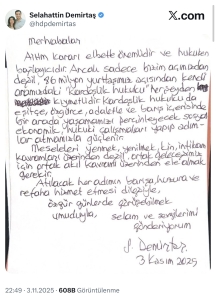 Selahattin Demirtaş
@hdpdemirtas
X.com
Merhabalar,
AİHM kararı elbette önemlidir ve hukuken
bağlayıcıdır. Ancak sadece bizim açımızdan
değil, 86 milyon yurttaşımız açısından kendi
aramızdaki "kardeşlik hukuku" her şeyden
kıymetlidir. Kardeşlik hukuku da
eşitçe, özgürce, adaletle ve barış içerisinde
bir arada yaşamamızı perçinleyecek sosyal
ekonomik, hukuki çalışmaları yapıp adım-
lar atmamızla güçlenir.
Meseleleri yenmek, yenilmek, kin, intikam
kavramları üzerinden değil, ortak geleceğimiz
için ortak akıl kavramı üzerinden ele almak
gerekir.
Atılacak her adımın barışa, huzura ve
refaha hizmet etmesi dileğiyle,
özgür günlerde görüşebilmek
umuduyla, selam ve sevgilerimi
gönderiyorum
S. Demirtaş
3 Kasım 2025
22:49 · 3.11.2025 · 608B Görüntülenme